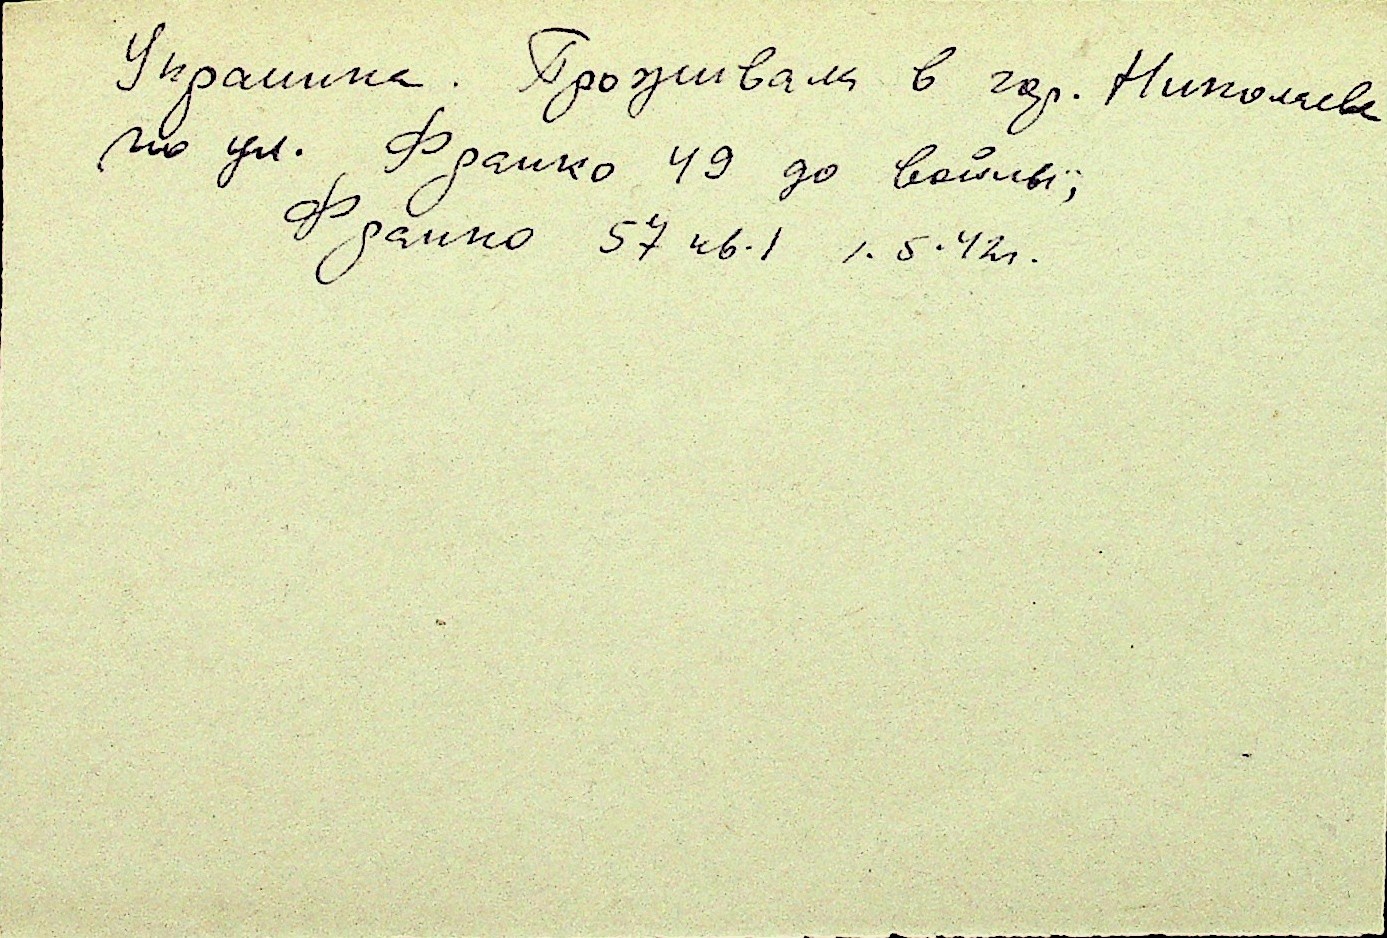 Украинка. Проживала в гор. Николаеве
по ул. Франко 49 до войны;
Франко 57 кв. 1 1.5.42г.